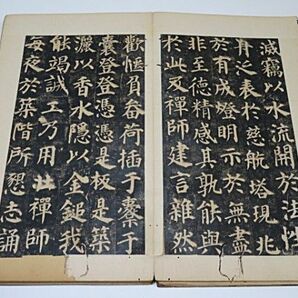 滅竊以水流開於法性
舟泛表於慈航塔現兆
於有成燈明示於無盡
非至德精感其孰能與
於此及禪師建言雜然
歡愜負畚荷插于橐于
囊登登憑憑是板是築
灑以香水隱以金鎚我
能竭誠工乃用壯禪師
每夜於築階所懇志誦